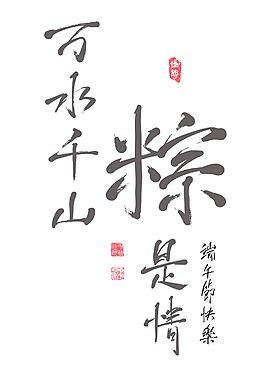 万水千山
粽
是情
端午節快樂